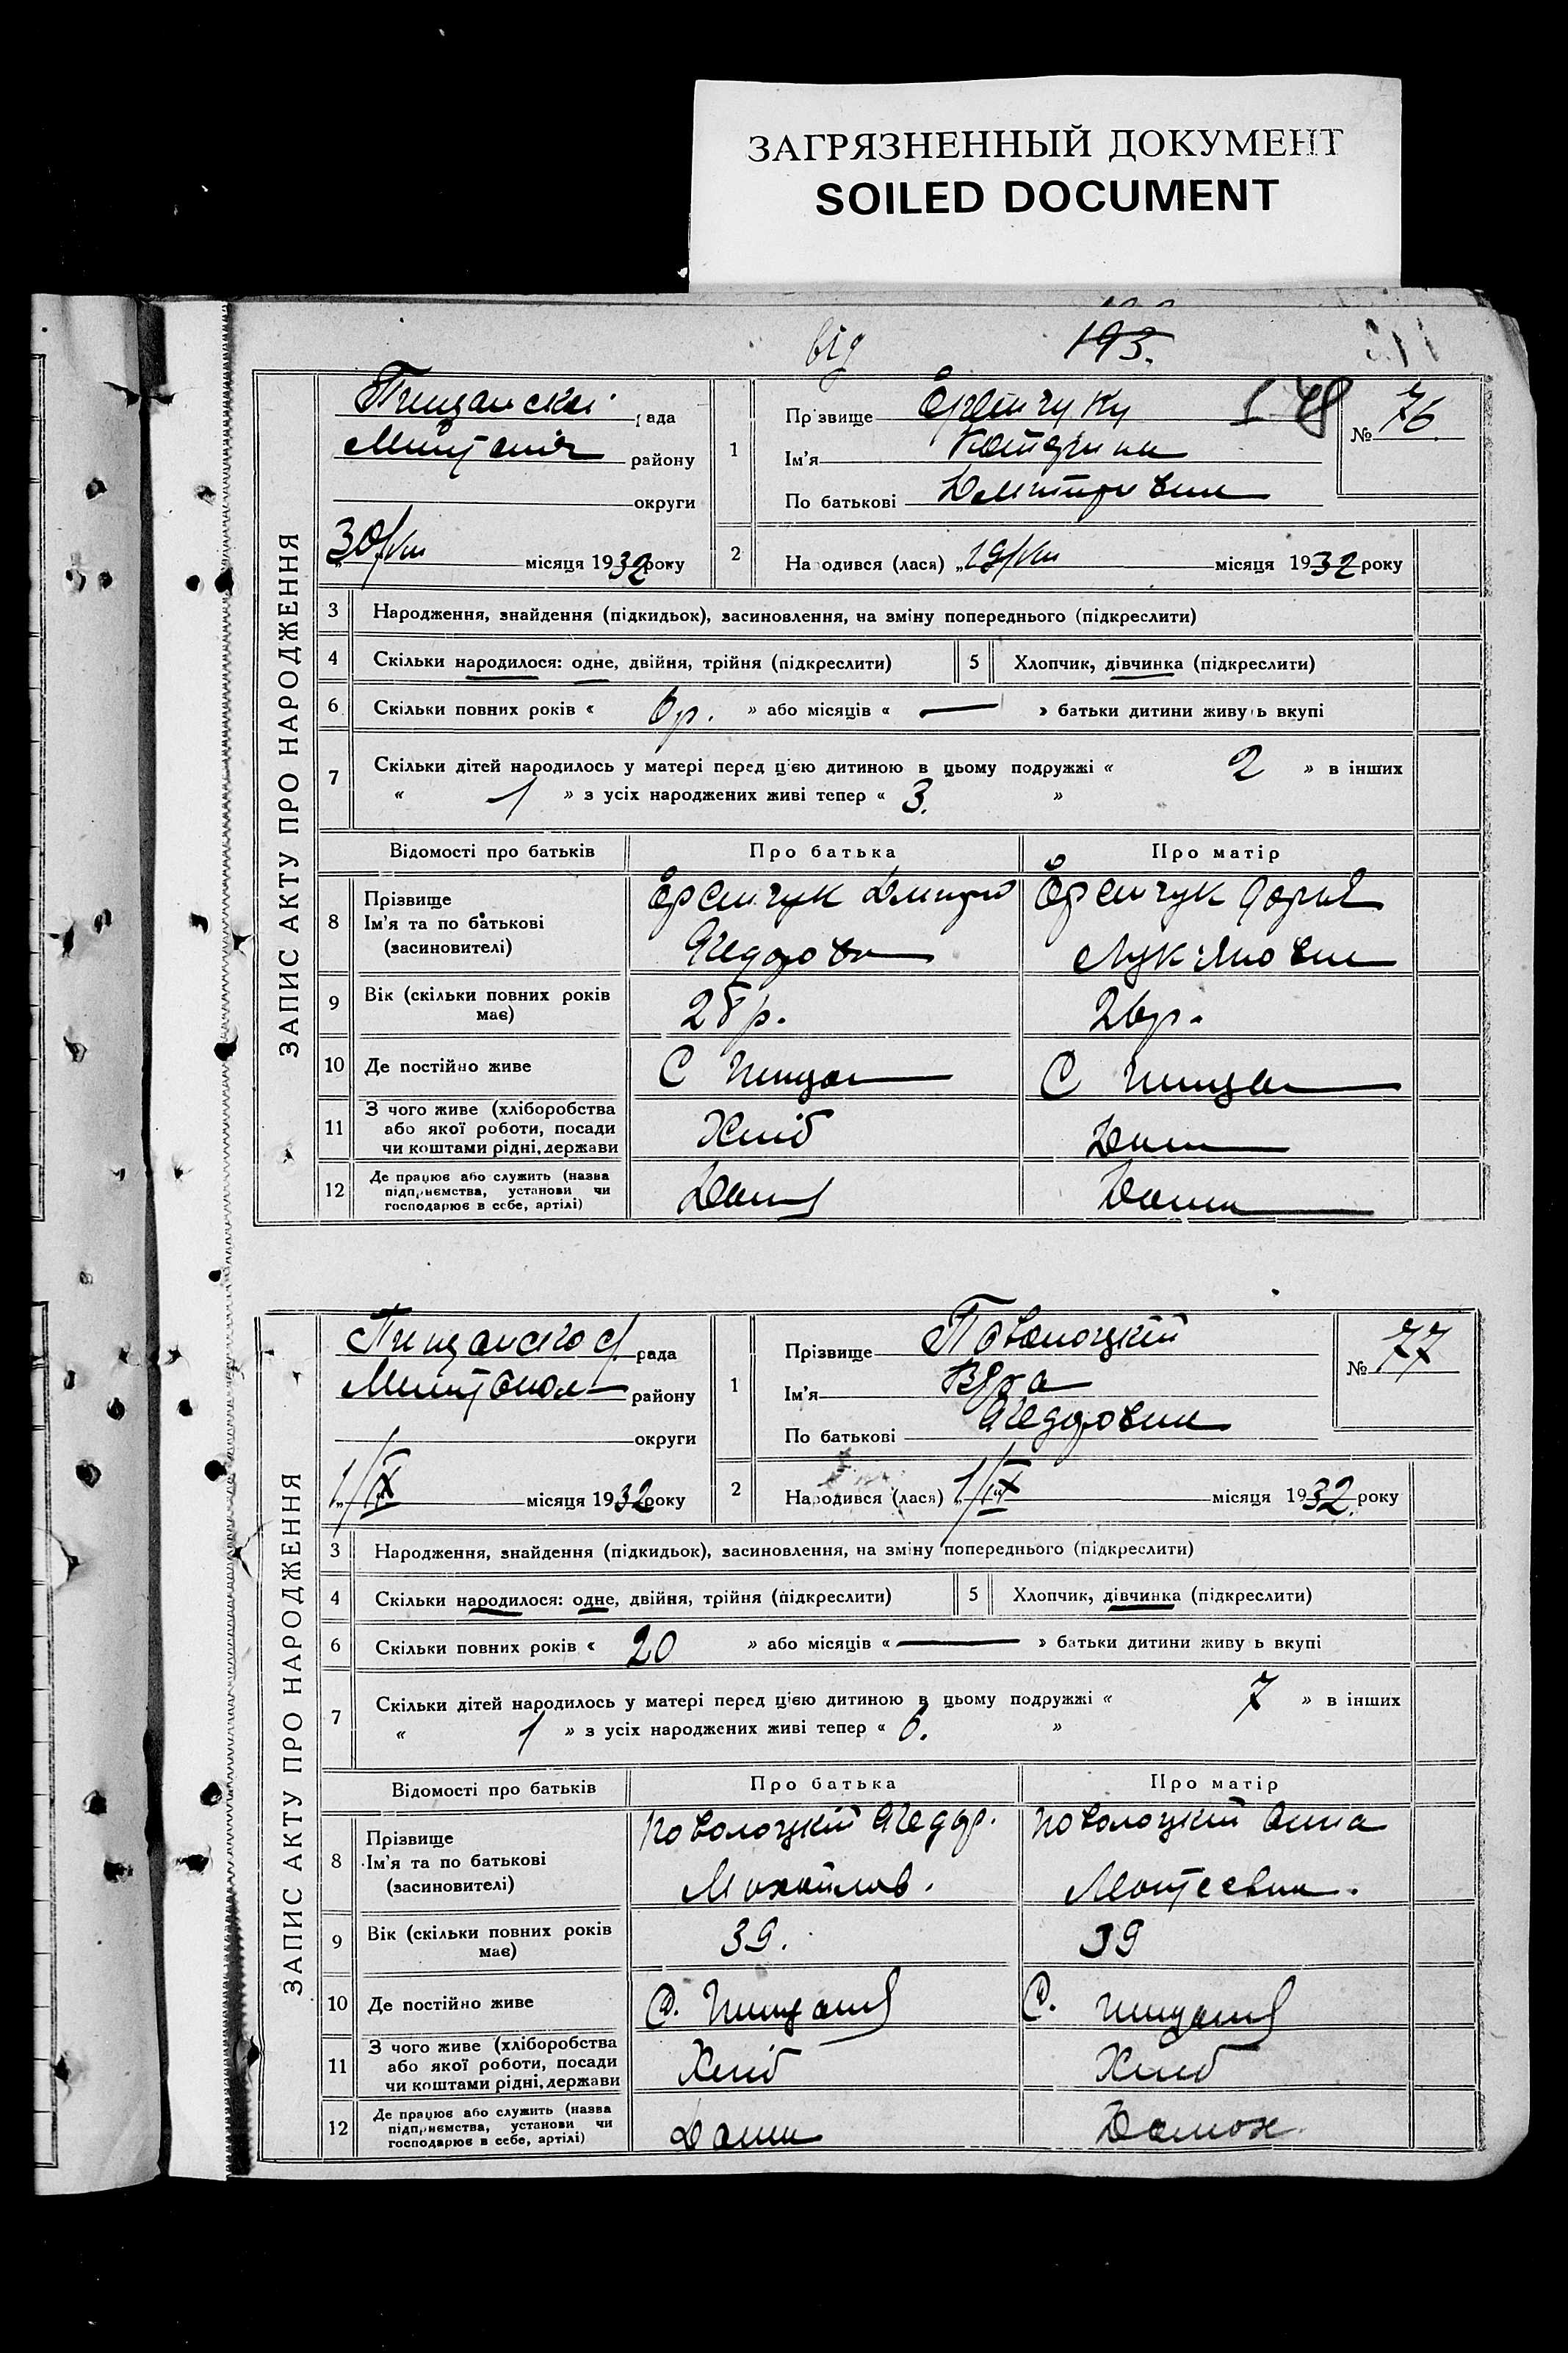 ЗАГРЯЗНЕННЫЙ ДОКУМЕНТ
SOILED DOCUMENT
від
193.
ЗАПИС АКТУ ПРО НАРОДЖЕННЯ
рада
району
округи
30/VIII місяця 1932 року
1
Прізвище
Ім'я Катерина
По батькові Дмитровна
№ 76
2
Народився (лася) „29/VIII місяця 1932 року
3 Народження, знайдення (підкидьок), засиновлення, на зміну попереднього (підкреслити)
4 Скільки народилося: одне, двійня, трійня (підкреслити) 5 Хлопчик, дівчинка (підкреслити)
6 Скільки повних років « 6 р. » або місяців « — » батьки дитини живуть вкупі
7 Скільки дітей народилось у матері перед цією дитиною в цьому подружжі « 2 » в інших
« 1 » з усіх народжених живі тепер « 3. »
Відомості про батьків Про батька Про матір
8 Прізвище
Ім'я та по батькові
(засиновителі)
Єремчук Дмитро Єремчук Дарія
Федоров Лук'яновна
9 Вік (скільки повних років має) 28 р. 26 р.
10 Де постійно живе С Пища С Пища
11 З чого живе (хліборобства
або якої роботи, посади
чи коштами рідні, держави
Хліб
12 Де працює або служить (назва
підприємства, установи чи
господарює в себе, артілі)
ЗАПИС АКТУ ПРО НАРОДЖЕННЯ
рада
району
округи
1/IX місяця 1932 року
1
Прізвище Поволоцкій
Ім'я Віра
По батькові Федоровна
№ 77
2
Народився (лася) 1/IX місяця 1932. року
3 Народження, знайдення (підкидьок), засиновлення, на зміну попереднього (підкреслити)
4 Скільки народилося: одне, двійня, трійня (підкреслити) 5 Хлопчик, дівчинка (підкреслити)
6 Скільки повних років « 20 » або місяців « — » батьки дитини живуть вкупі
7 Скільки дітей народилось у матері перед цією дитиною в цьому подружжі « 7 » в інших
« 1 » з усіх народжених живі тепер « 6. »
Відомості про батьків Про батька Про матір
8 Прізвище
Ім'я та по батькові
(засиновителі)
Поволоцкій Федор. Поволоцкій Анна
Михайлов. Матеевна.
9 Вік (скільки повних років має) 39. 39
10 Де постійно живе С. Пищаній С. Пищаній
11 З чого живе (хліборобства
або якої роботи, посади
чи коштами рідні, держави
Хліб Хліб
12 Де працює або служить (назва
підприємства, установи чи
господарює в себе, артілі)